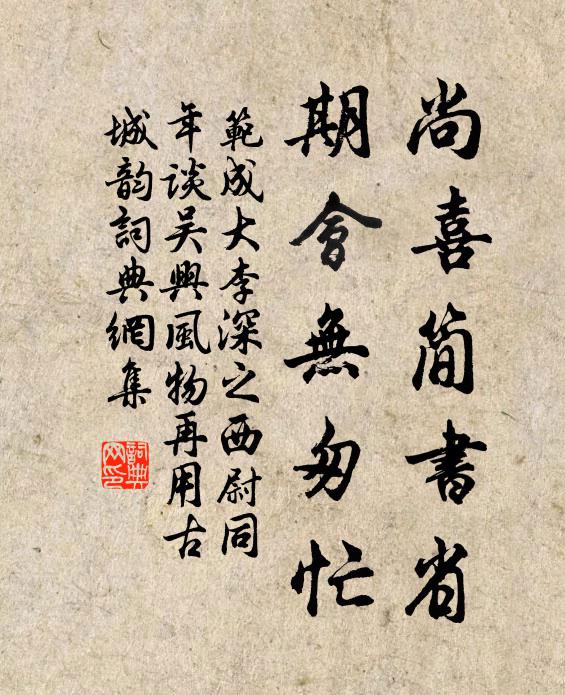 尚喜简書省
期會無匆忙
範成大李深之西尉同
年谈吴興風物再用古
城韵詞典網集
詞典
网印